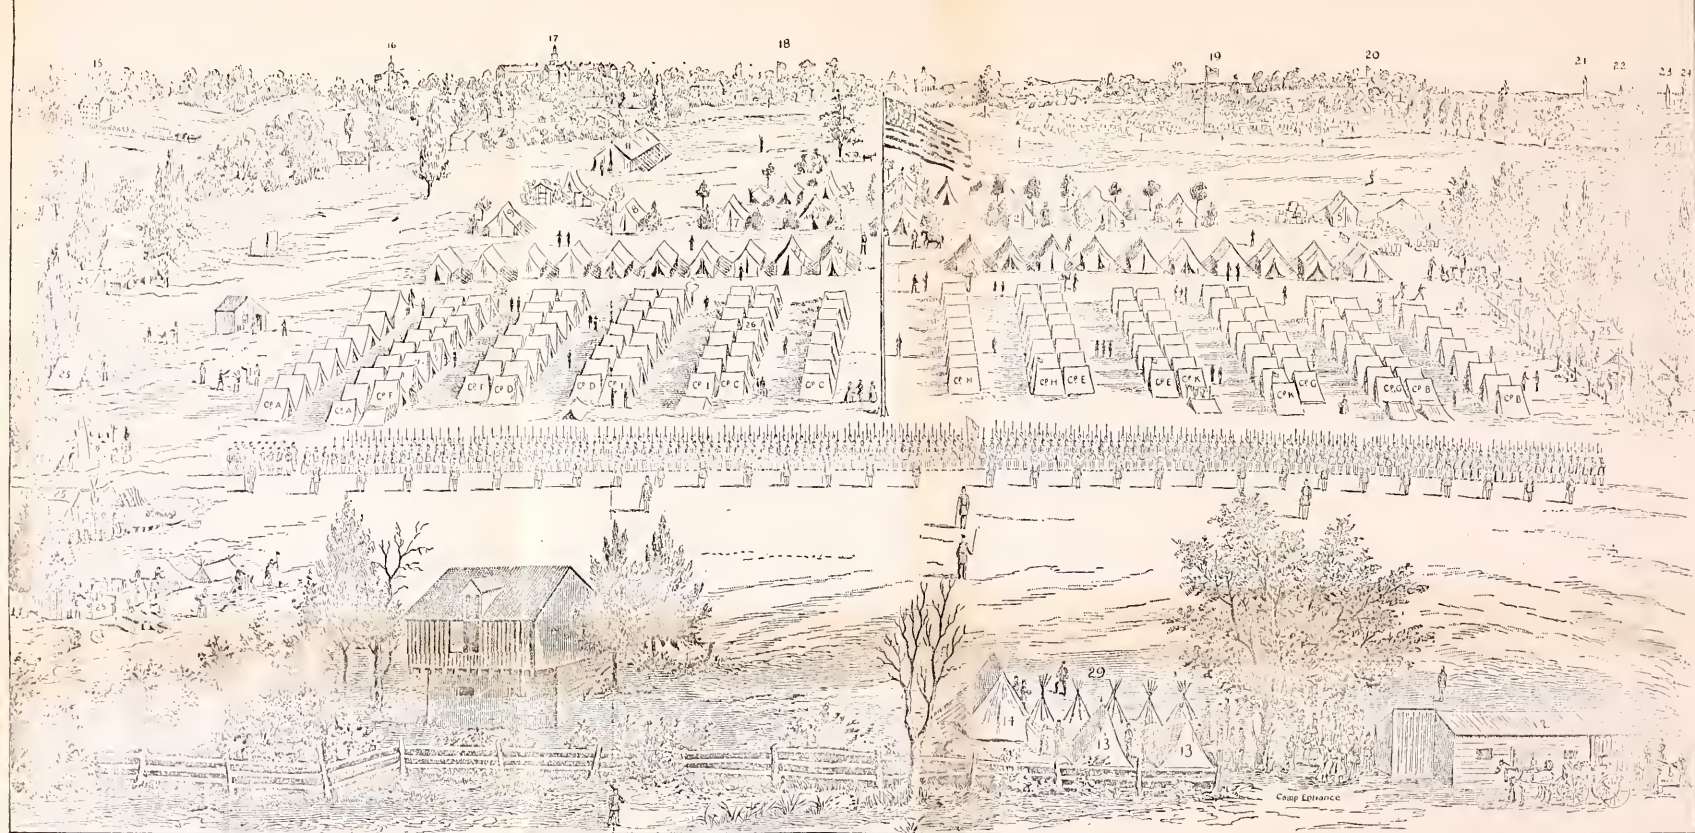 15 16 17 18 19 20 21 22 23 24
11
9 8 7 3 4 5
26 25
25
Cº A Cº A Cº F Cº F Cº D Cº D Cº I Cº I Cº C Cº C Cº H Cº H Cº E Cº E Cº K Cº K Cº G Cº G Cº B Cº B
29
14 13 13 12
Camp Entrance